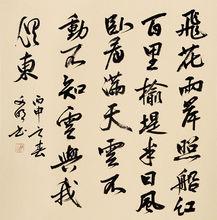 飛花兩岸照船紅
百里榆堤半日風
臥看滿天雲不
動不知雲與我
俱東
丙申之春